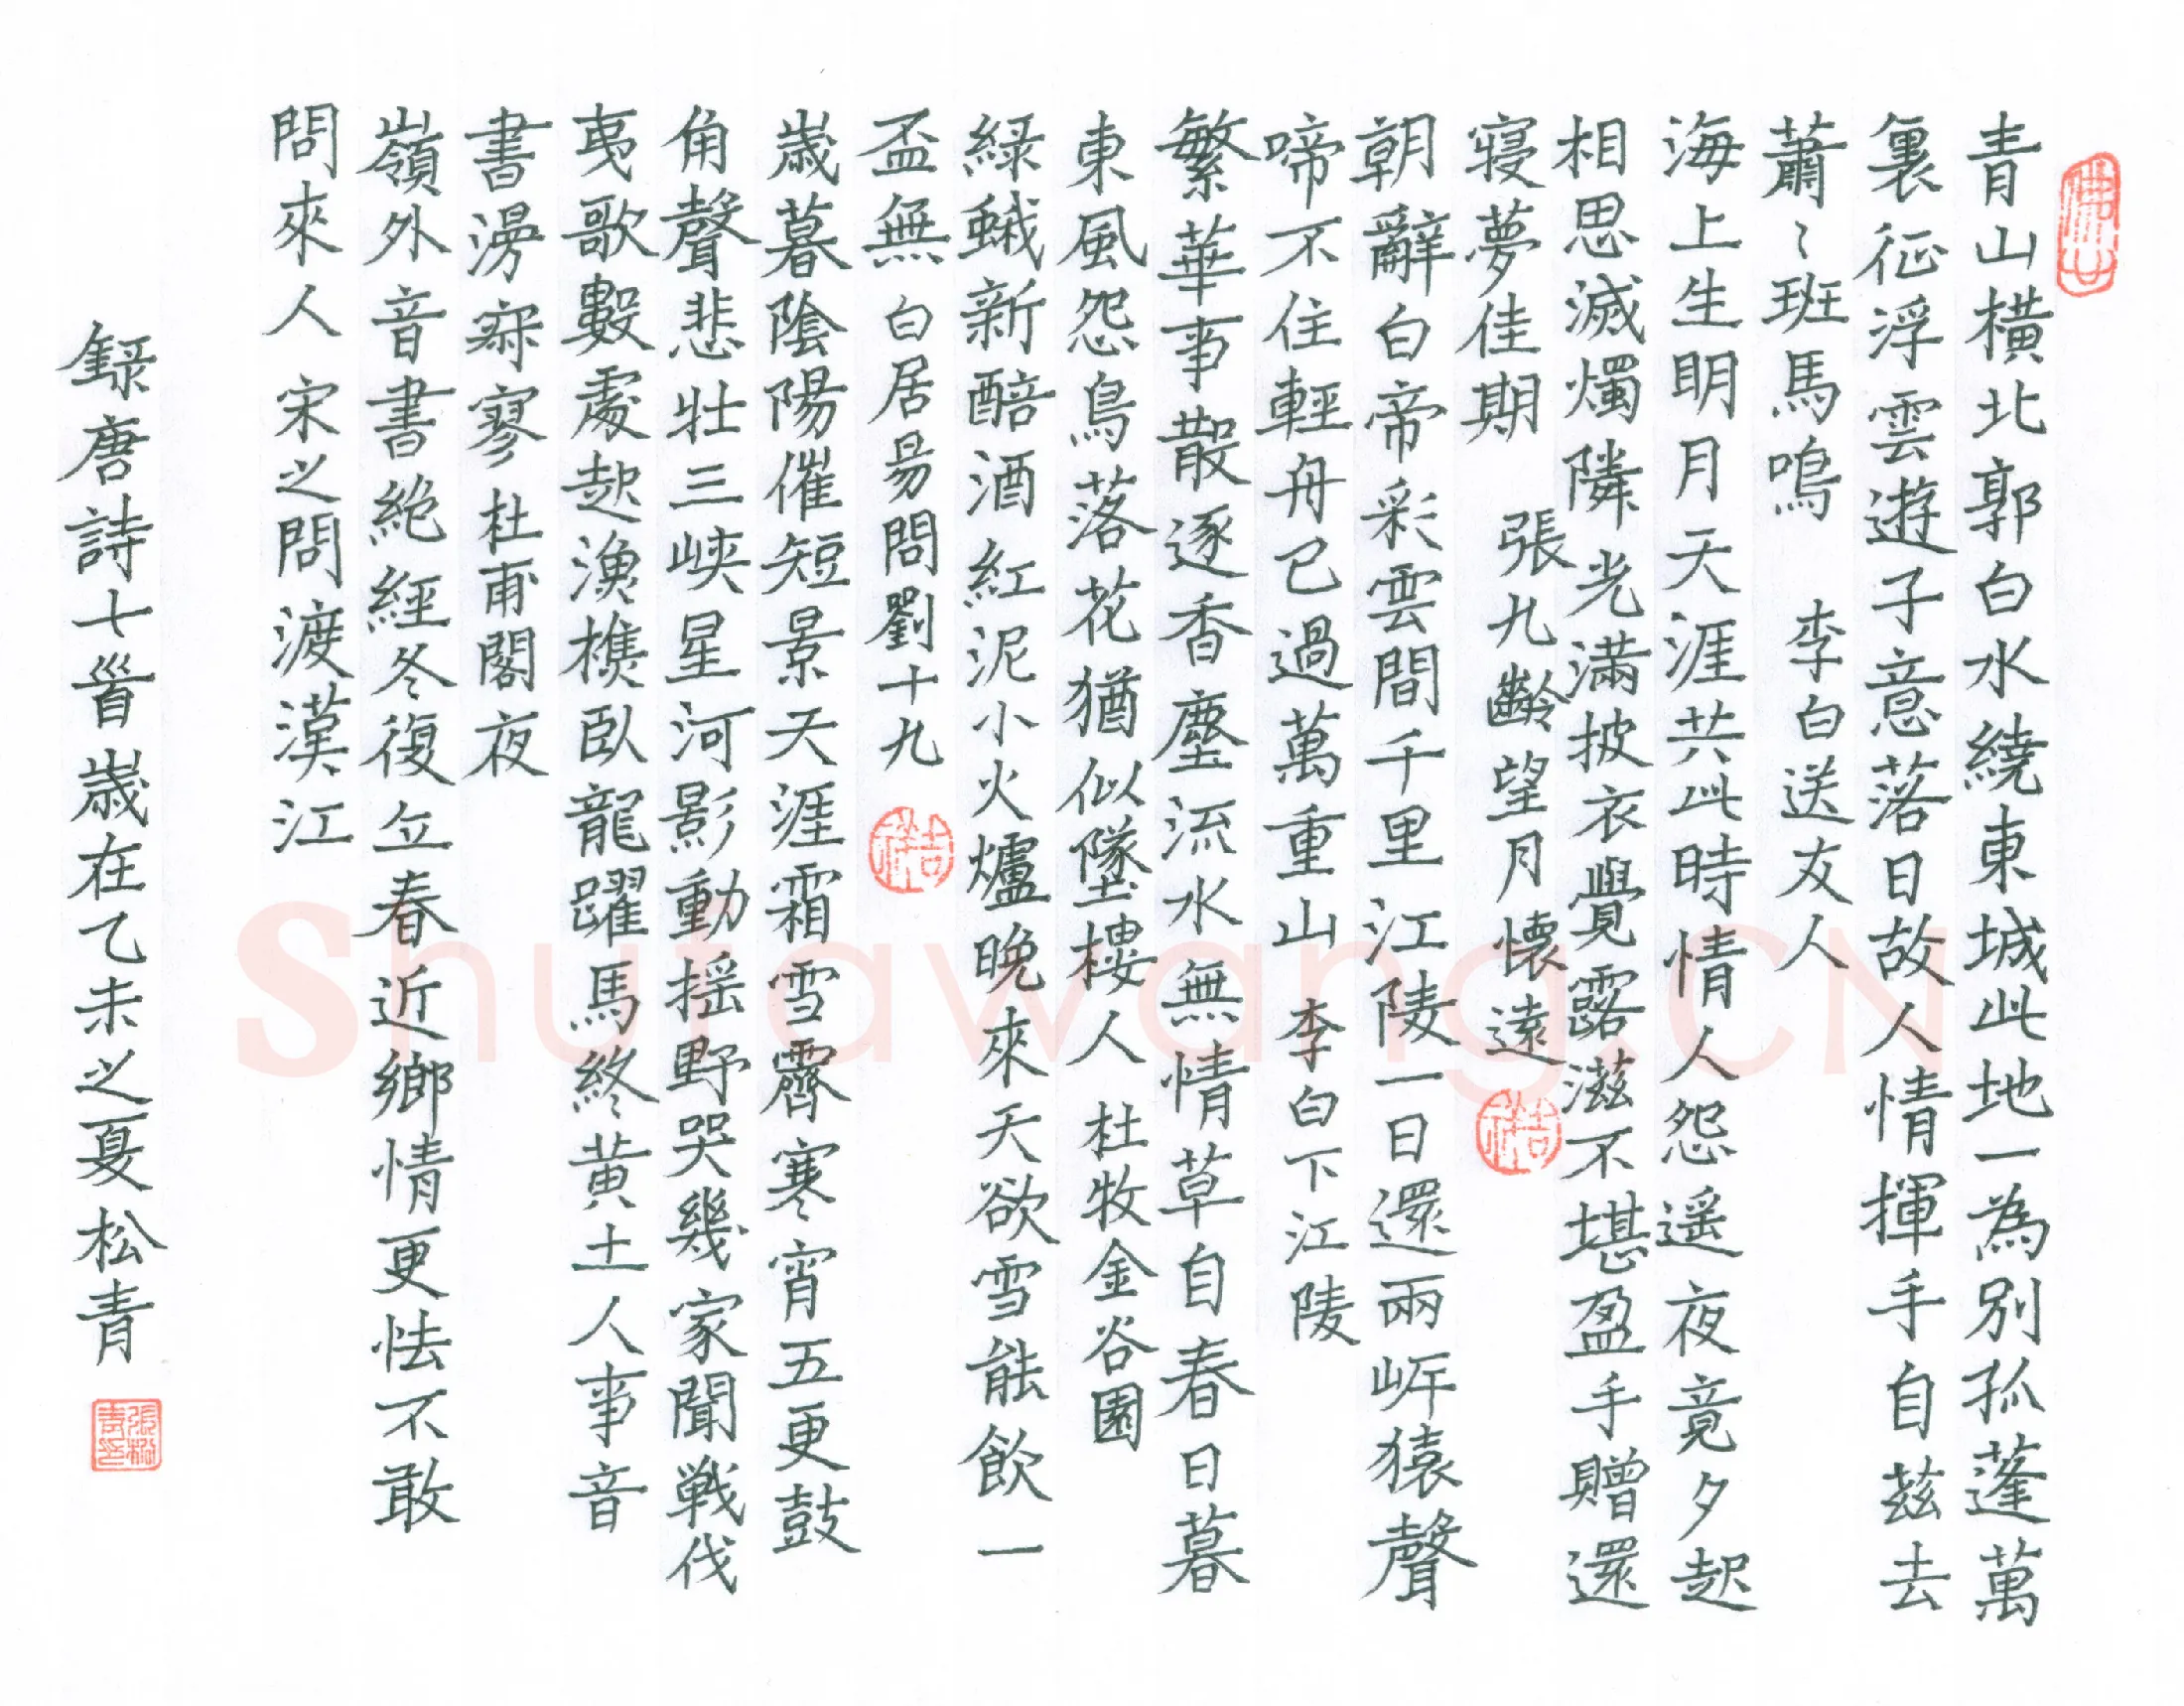 青山橫北郭白水繞東城此地一為別孤蓬萬
裏征浮雲遊子意落日故人情揮手自茲去
蕭〻班馬鳴 李白送友人
海上生明月天涯共此時情人怨遥夜竟夕起
相思滅燭隣光滿披衣覺露滋不堪盈手贈還
寢夢佳期 張九齡望月懷遠
朝辭白帝彩雲間千里江陵一日還兩岸猿聲
啼不住輕舟已過萬重山 李白下江陵
繁華事散逐香塵流水無情草自春日暮
東風怨鳥落花猶似墜樓人 杜牧金谷園
綠蟻新醅酒紅泥小火爐晚來天欲雪能飲一
盃無 白居易問劉十九
歲暮陰陽催短景天涯霜雪霽寒宵五更鼓
角聲悲壯三峽星河影動揺野哭幾家聞戰伐
夷歌數處起漁樵臥龍躍馬終黄土人事音
書漫寂寥 杜甫閣夜
嶺外音書絶經冬復立春近鄉情更怯不敢
問來人 宋之問渡漢江
録唐詩七首歲在乙未之夏松青
吉祥
吉祥
張松青印
Shufawang.CN